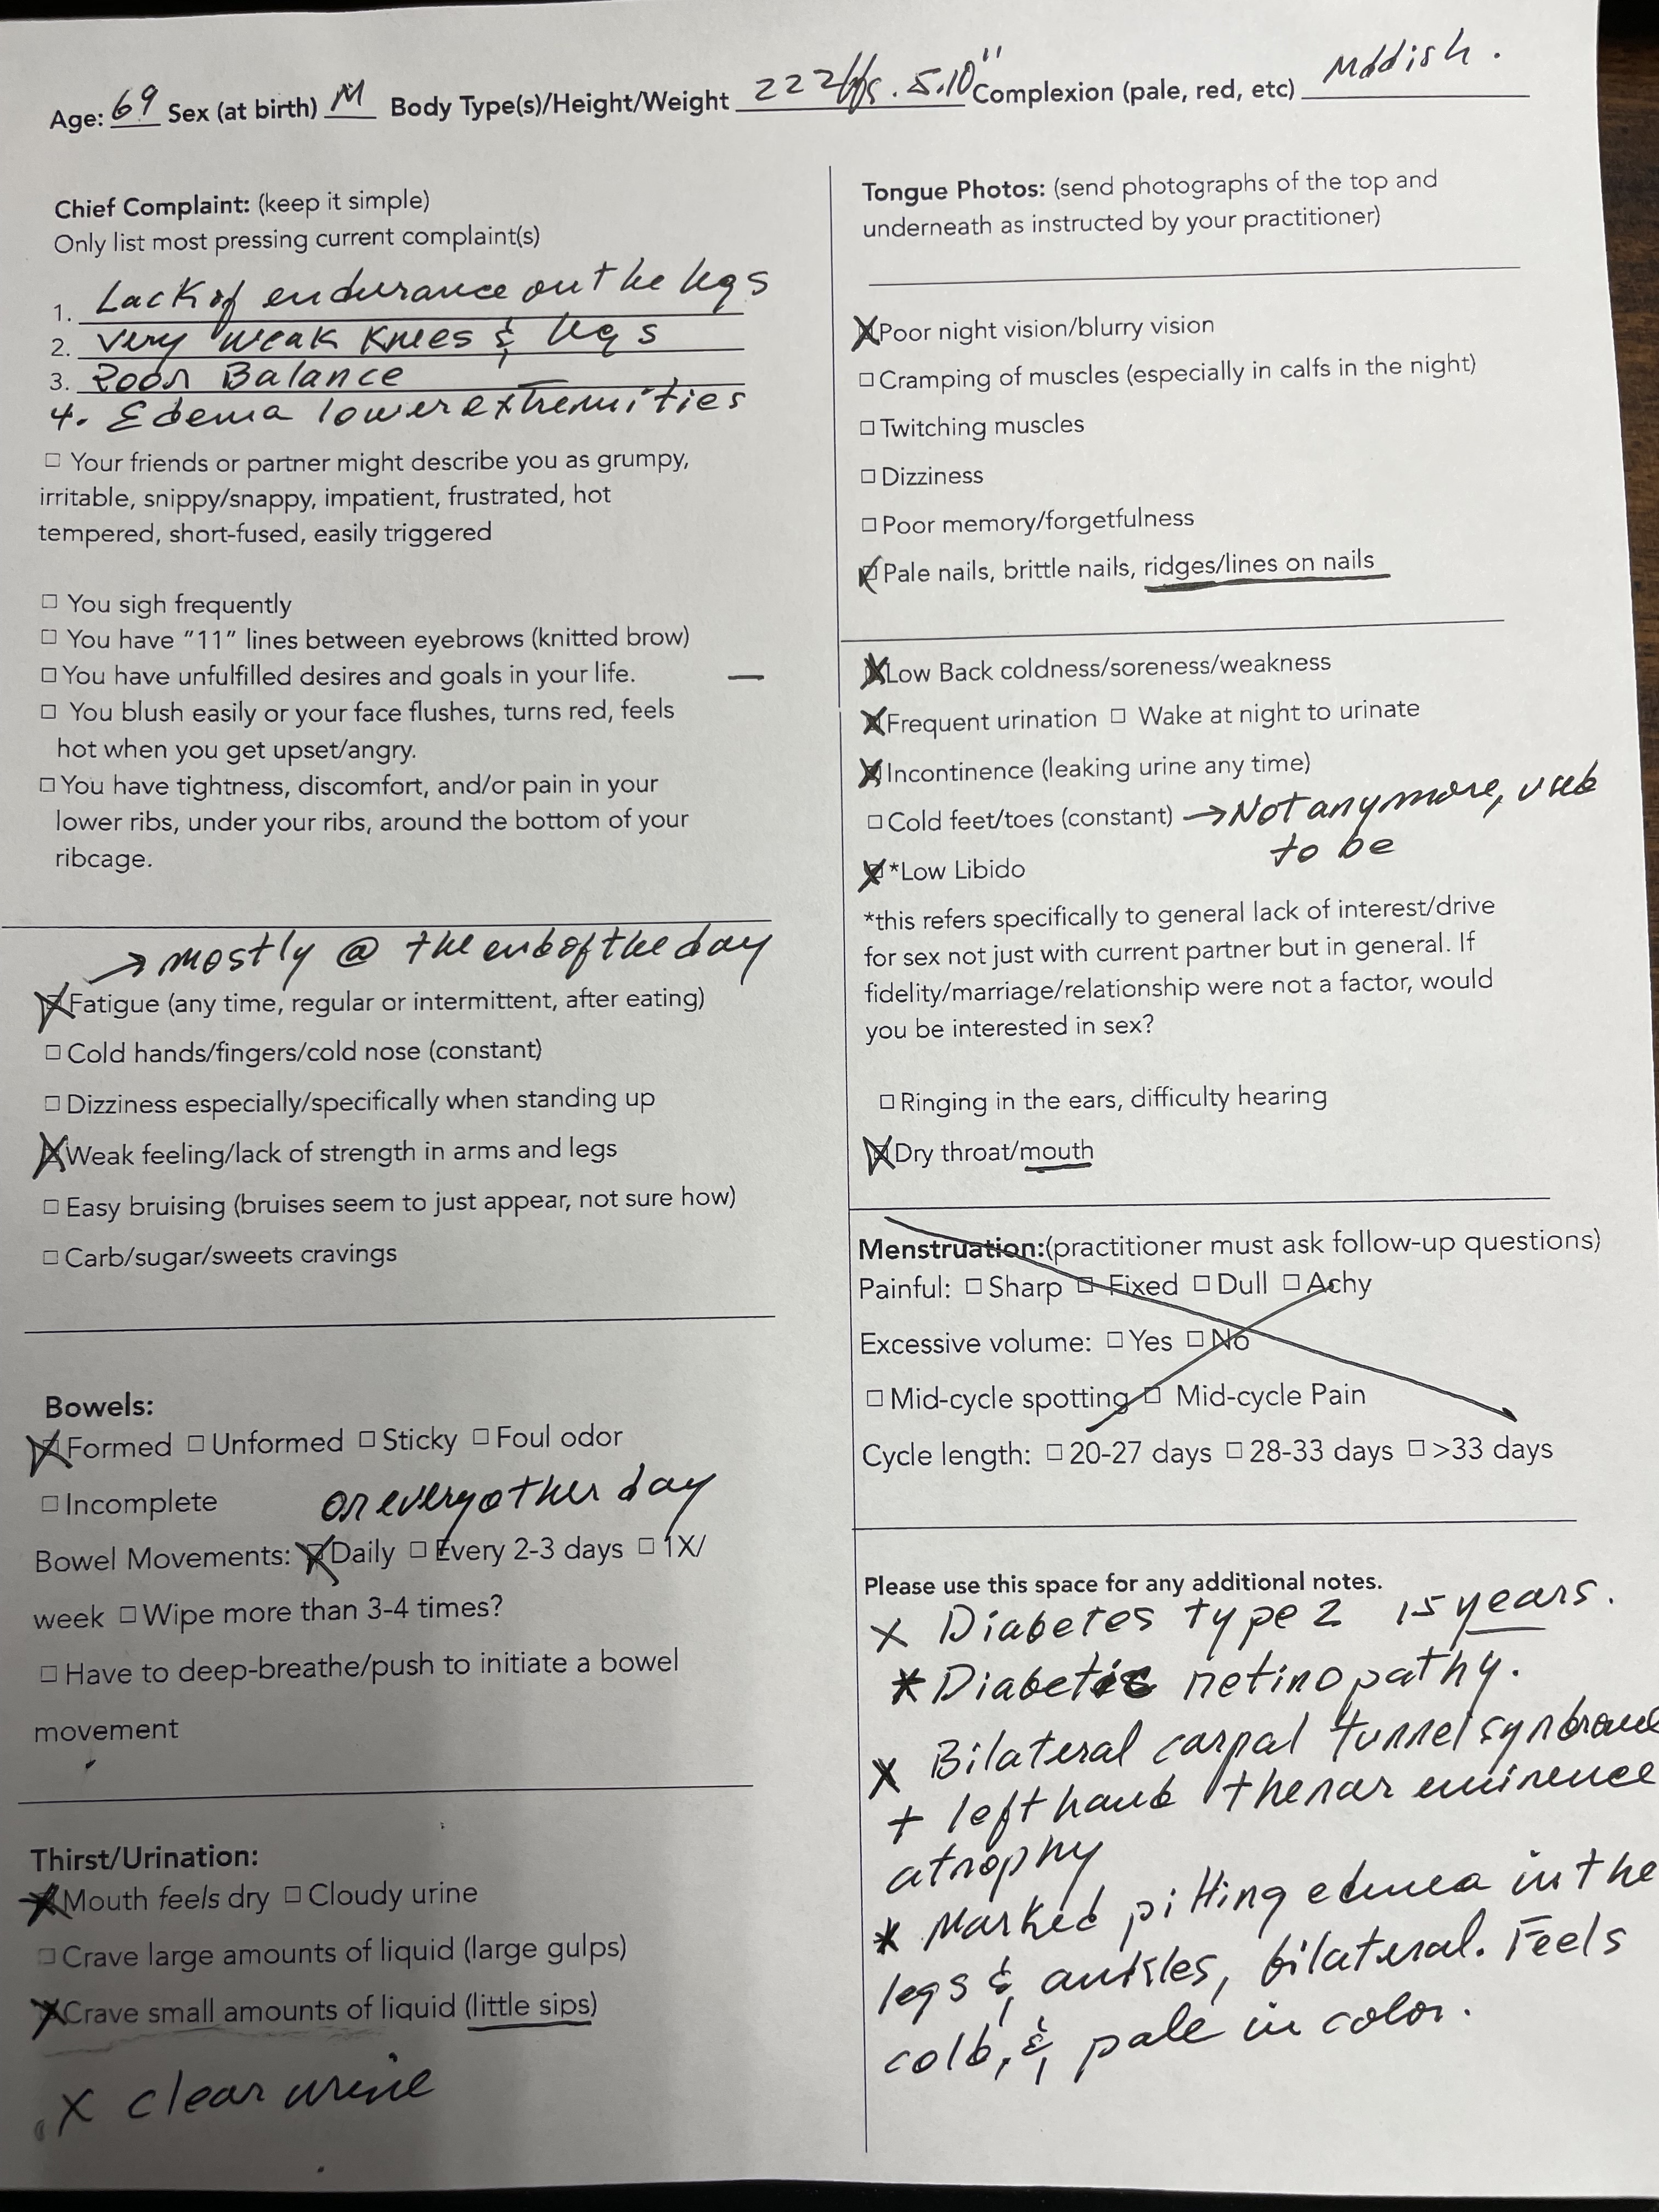 Age: 69 Sex (at birth) M Body Type(s)/Height/Weight 222 lbs. 5.10" Complexion (pale, red, etc)
Chief Complaint: (keep it simple)
Only list most pressing current complaint(s)
1. Lack of endurance on the legs
2. very weak knees & legs
3. Poor Balance
4. Edema lower extremities
☐ Your friends or partner might describe you as grumpy,
irritable, snippy/snappy, impatient, frustrated, hot
tempered, short-fused, easily triggered
☐ You sigh frequently
☐ You have "11" lines between eyebrows (knitted brow)
☐ You have unfulfilled desires and goals in your life. —
☐ You blush easily or your face flushes, turns red, feels
hot when you get upset/angry.
☐ You have tightness, discomfort, and/or pain in your
lower ribs, under your ribs, around the bottom of your
ribcage.
→ mostly @ the end of the day
☒ Fatigue (any time, regular or intermittent, after eating)
☐ Cold hands/fingers/cold nose (constant)
☐ Dizziness especially/specifically when standing up
☒ Weak feeling/lack of strength in arms and legs
☐ Easy bruising (bruises seem to just appear, not sure how)
☐ Carb/sugar/sweets cravings
Bowels:
☒ Formed ☐ Unformed ☐ Sticky ☐ Foul odor
☐ Incomplete
or every other day
Bowel Movements: ☒ Daily ☐ Every 2-3 days ☐ 1X/
week ☐ Wipe more than 3-4 times?
☐ Have to deep-breathe/push to initiate a bowel
movement
Thirst/Urination:
☒ Mouth feels dry ☐ Cloudy urine
☐ Crave large amounts of liquid (large gulps)
☒ Crave small amounts of liquid (little sips)
x clear urine
Tongue Photos: (send photographs of the top and
underneath as instructed by your practitioner)
☒ Poor night vision/blurry vision
☐ Cramping of muscles (especially in calfs in the night)
☐ Twitching muscles
☐ Dizziness
☐ Poor memory/forgetfulness
☒ Pale nails, brittle nails, ridges/lines on nails
☒ Low Back coldness/soreness/weakness
☒ Frequent urination ☐ Wake at night to urinate
☒ Incontinence (leaking urine any time)
☐ Cold feet/toes (constant) → Not anymore, used
to be
☒ *Low Libido
*this refers specifically to general lack of interest/drive
for sex not just with current partner but in general. If
fidelity/marriage/relationship were not a factor, would
you be interested in sex?
☐ Ringing in the ears, difficulty hearing
☒ Dry throat/mouth
Menstruation:(practitioner must ask follow-up questions)
Painful: ☐ Sharp ☐ Fixed ☐ Dull ☐ Achy
Excessive volume: ☐ Yes ☐ No
☐ Mid-cycle spotting ☐ Mid-cycle Pain
Cycle length: ☐ 20-27 days ☐ 28-33 days ☐ >33 days
Please use this space for any additional notes.
x Diabetes type 2 15 years.
* Diabetic retinopathy.
x Bilateral carpal tunnel syndrome
+ left hand thenar eminence
atrophy
* Marked pitting edema in the
legs & ankles, bilateral. Feels
cold, & pale in color.